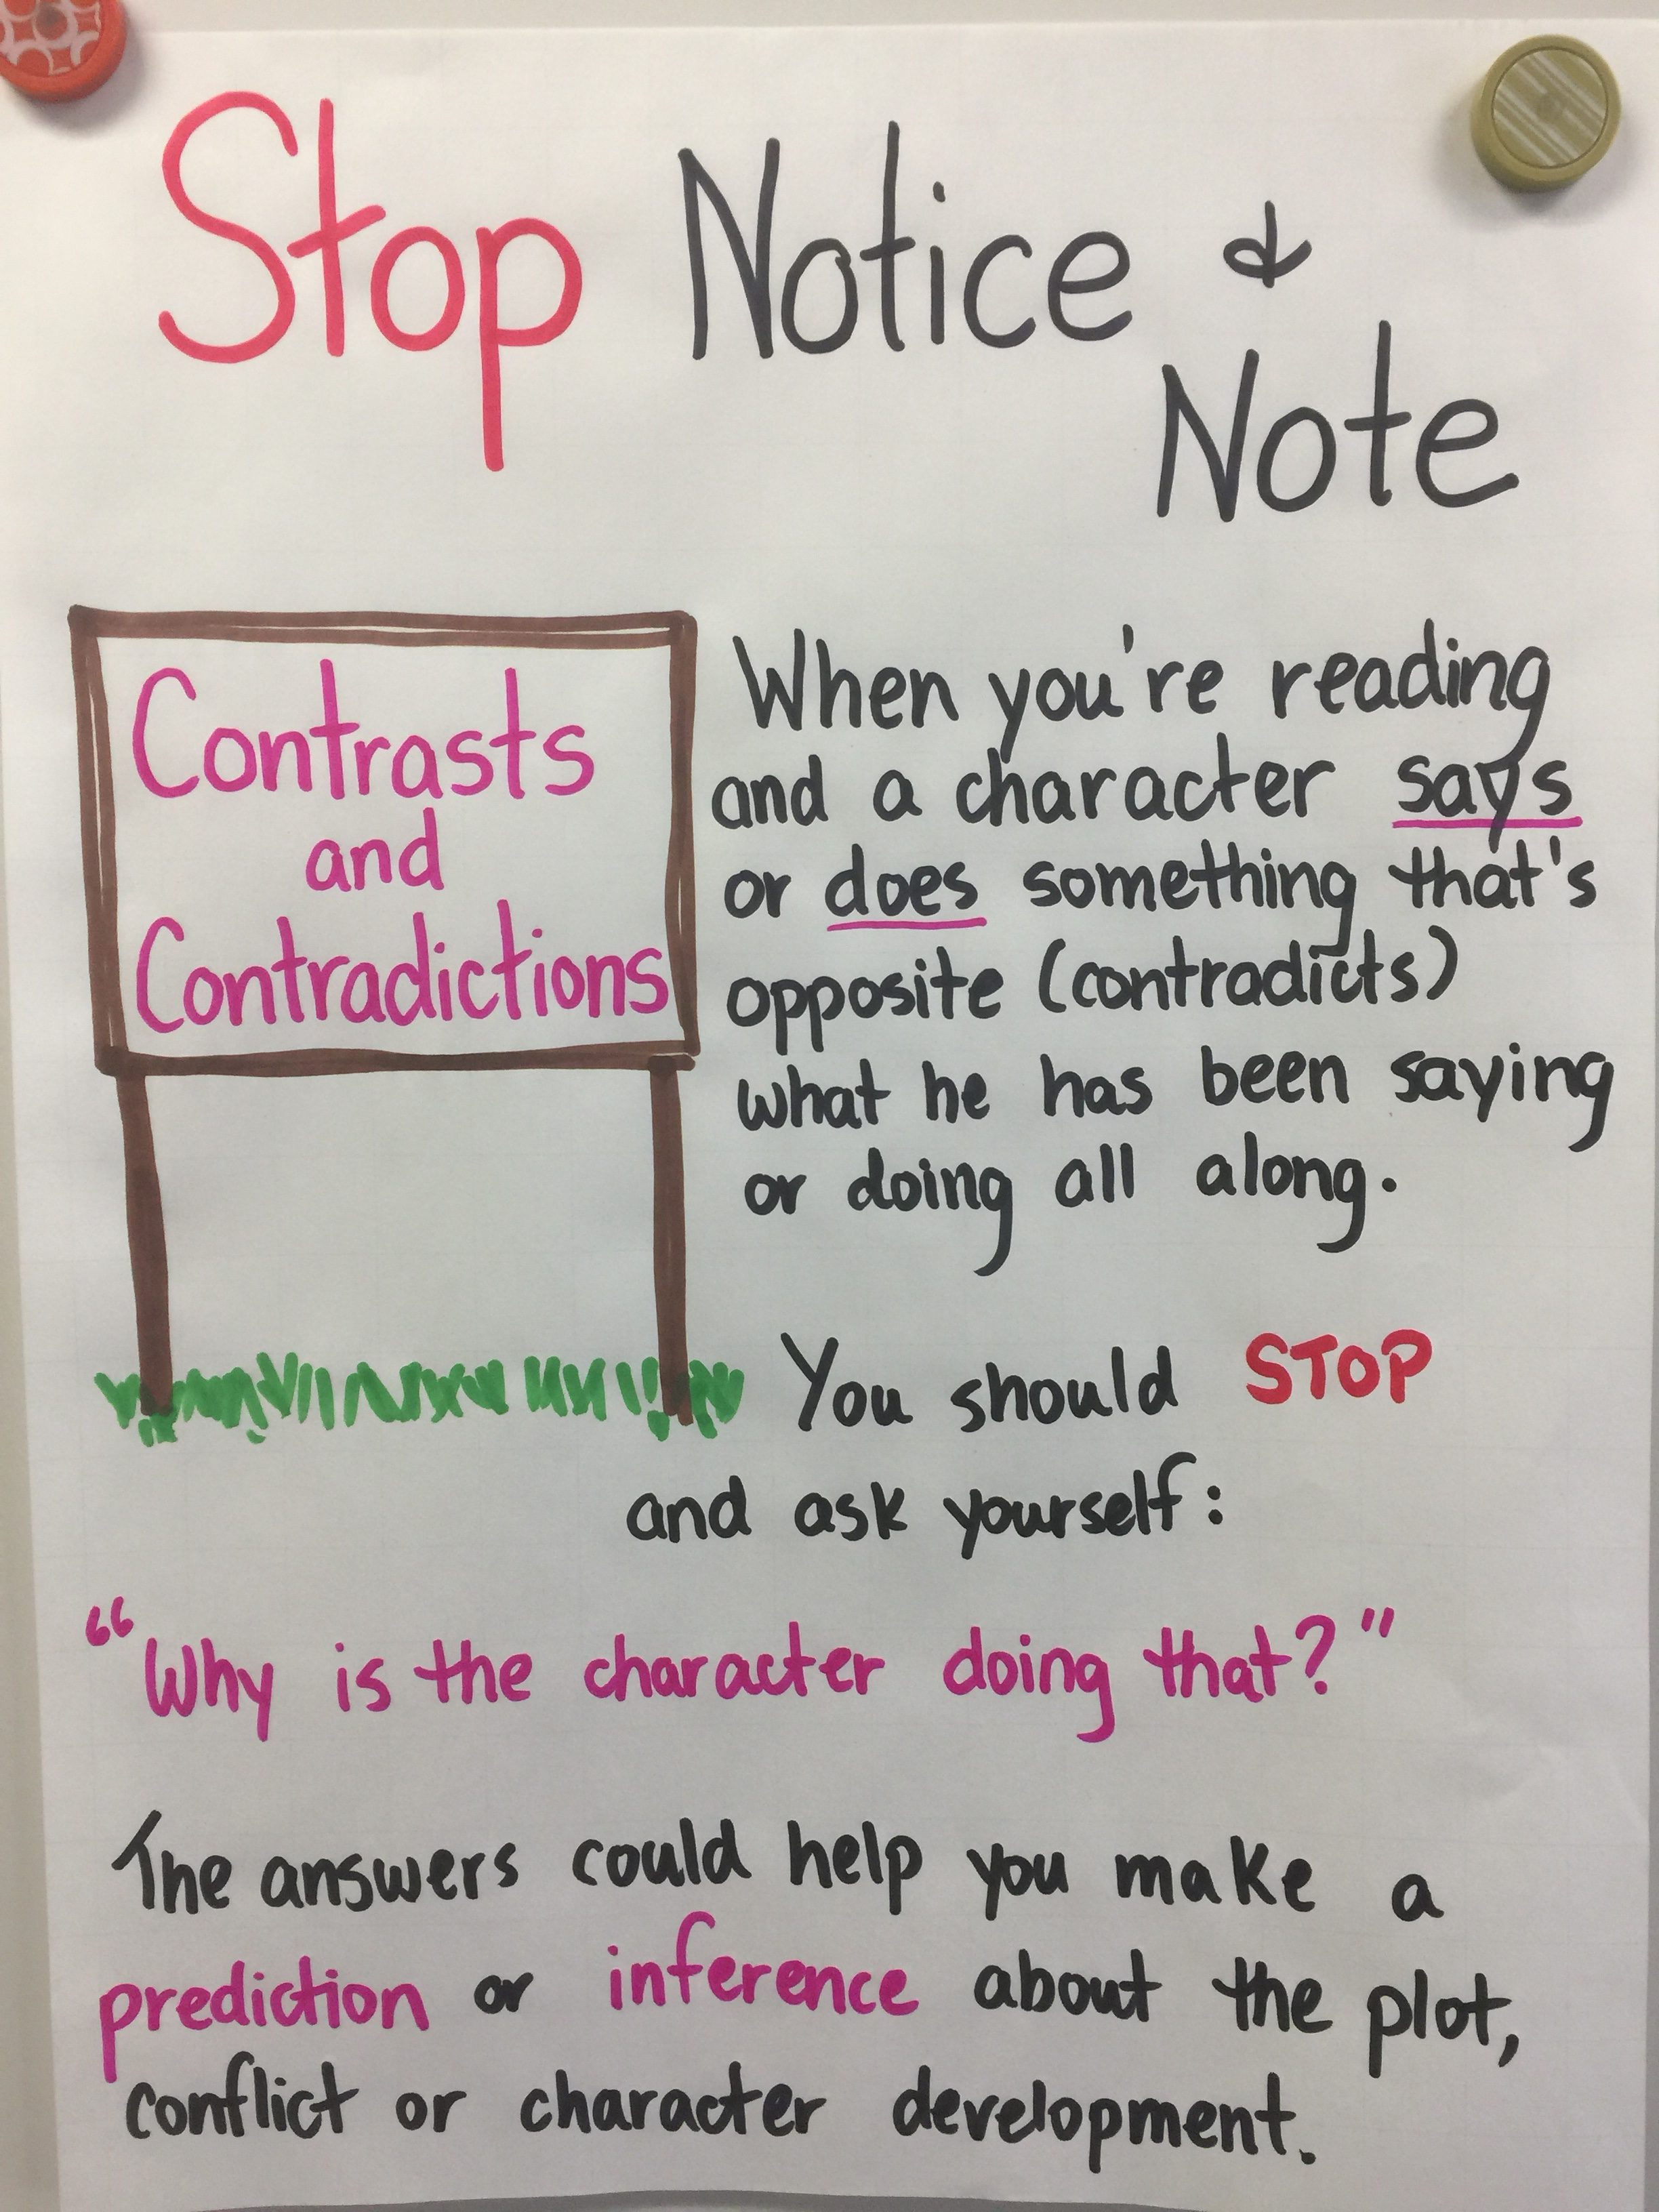 Stop Notice &
Note
Contrasts
and
Contradictions
When you're reading
and a character says
or does something that's
opposite (contradicts)
what he has been saying
or doing all along.
You should STOP
and ask yourself:
"Why is the character doing that?"
The answers could help you make a
prediction or inference about the plot,
conflict or character development.